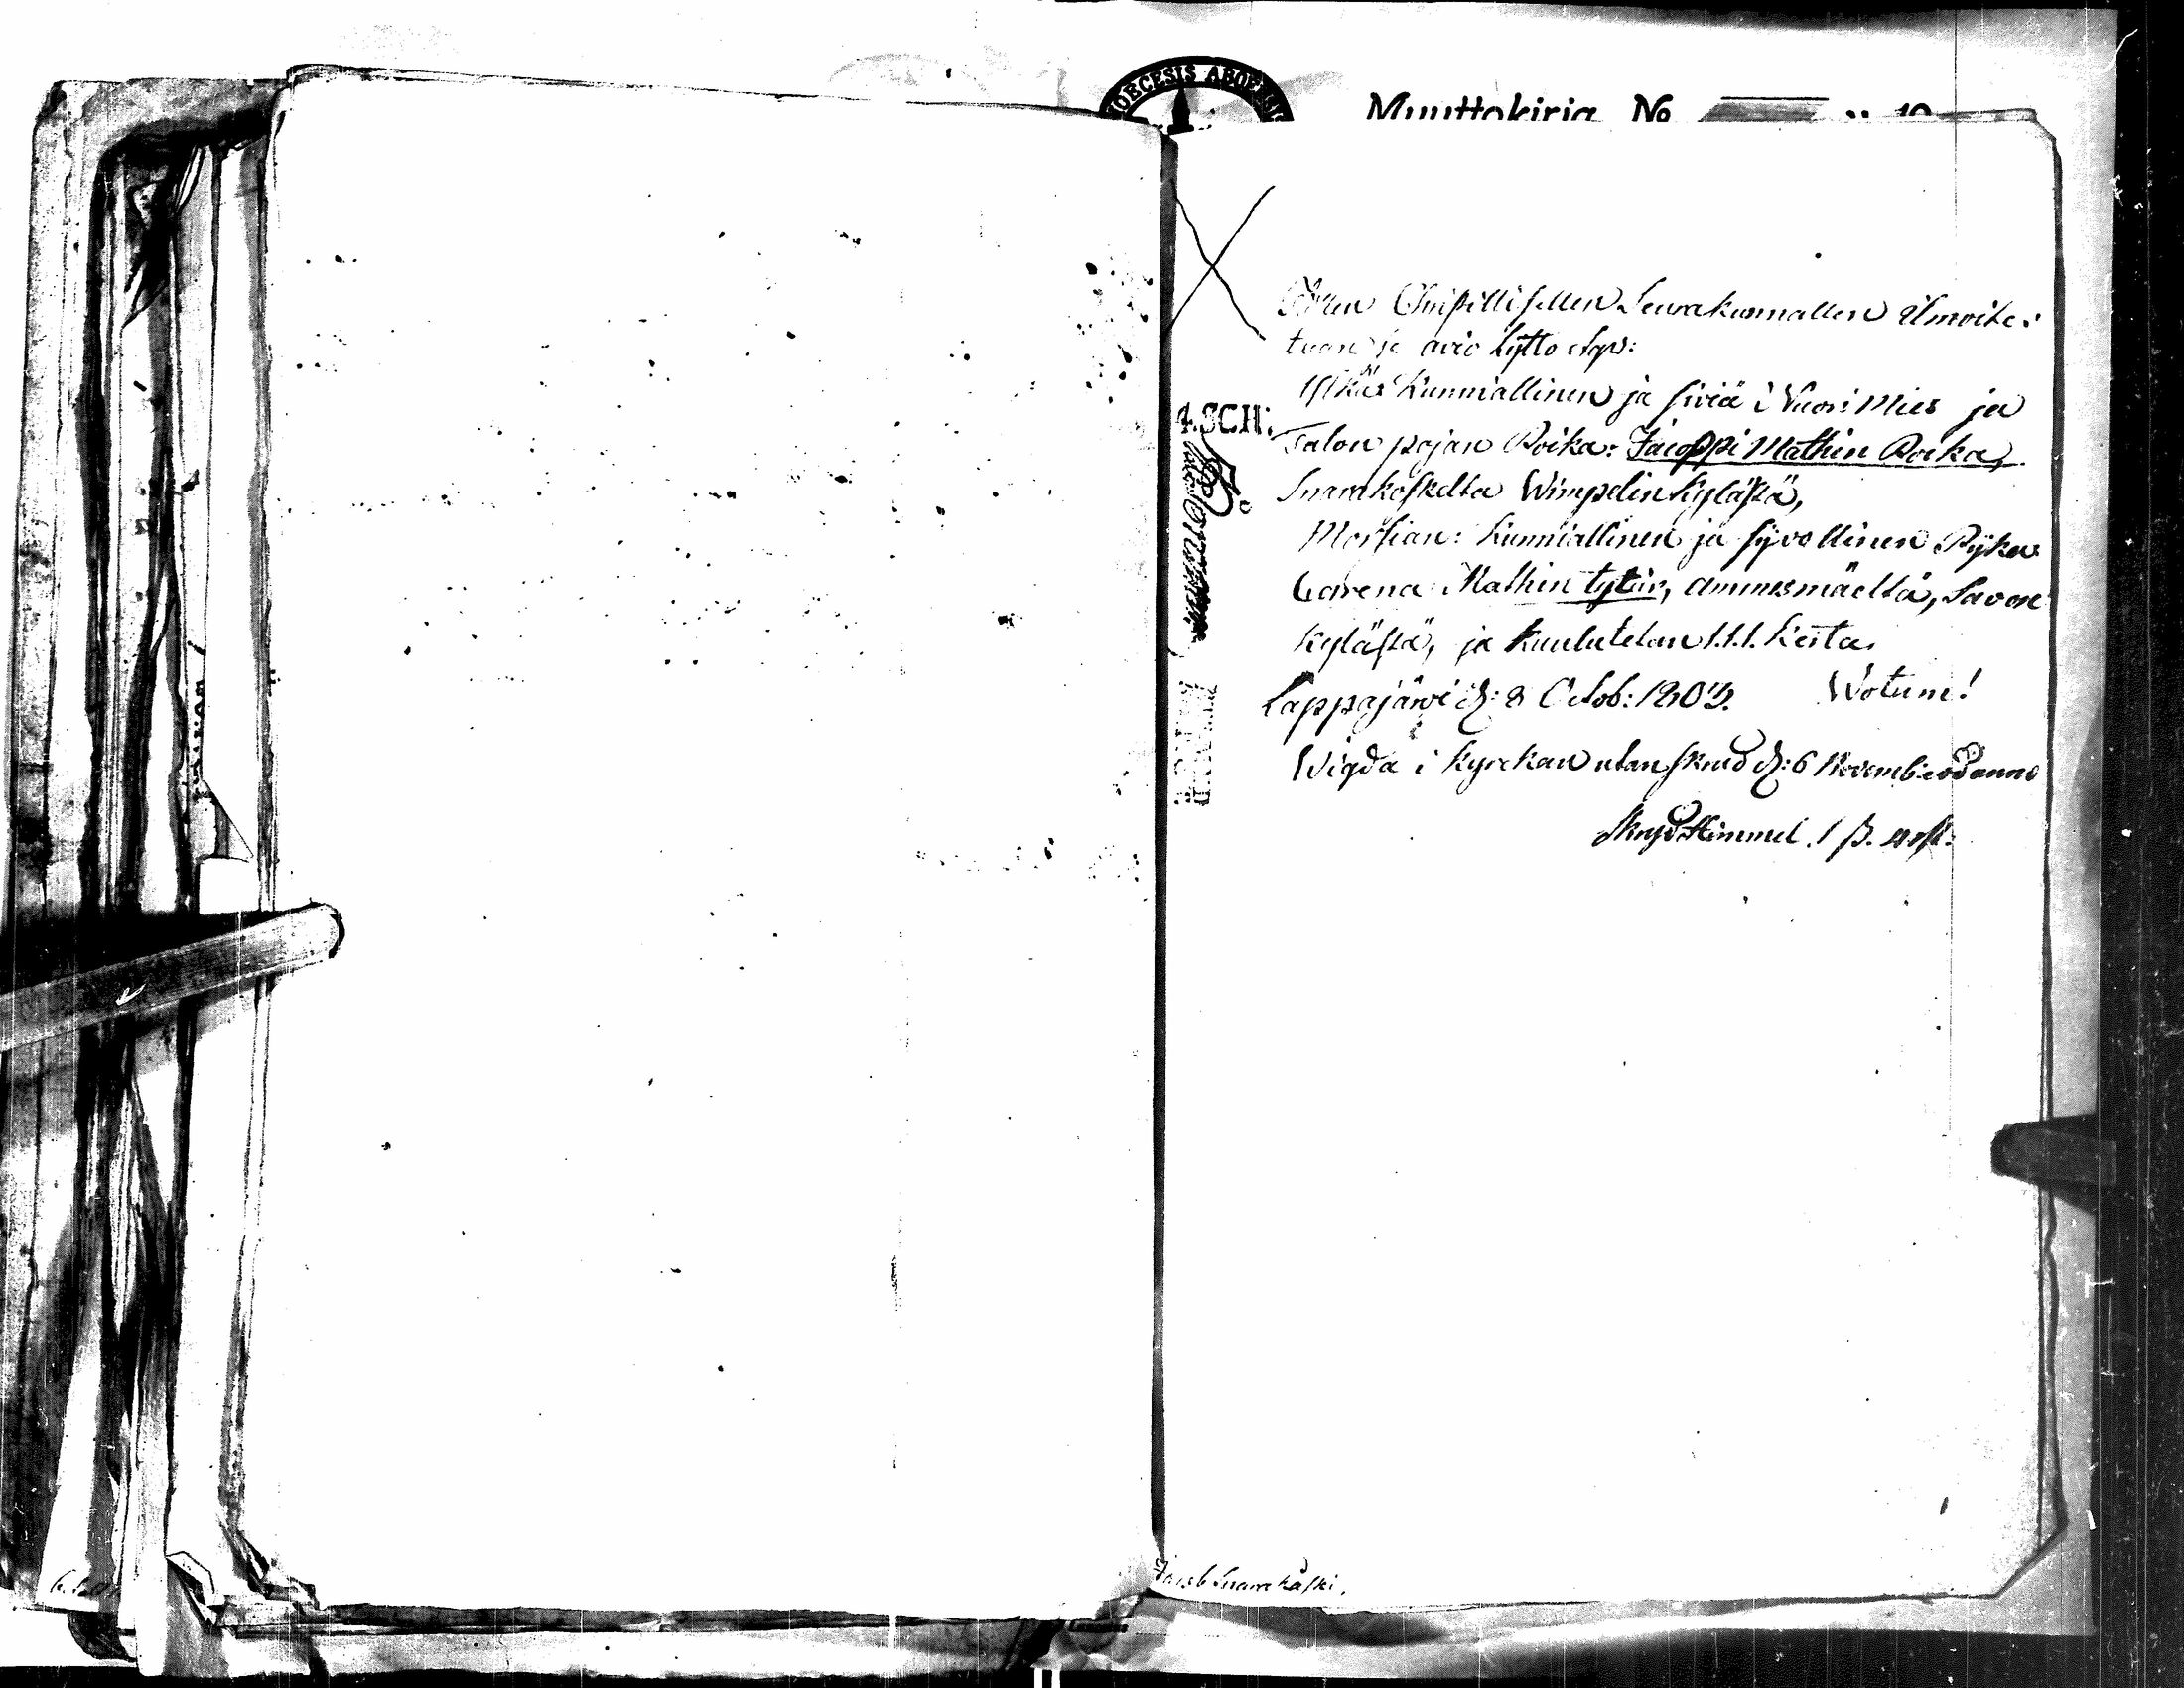 DIOECESIS ABOENSIS
Muuttokirja No 19
Christillisellen Seurakunnallen ilmoite:
tan ja avio kytto
Ylkä: Kunniallinen ja siviä Nuori Mies ja
Talon pojan Poika: Jacoppi Mathin Poika,
Snarakoskelta Wimpelin kylästä,
Morsian: Kunniallinen ja syvollinen Pijka
Carena Mathin tytär, Ammesmäeltä, Savon
kylästä, ja kuulutetan 1.1.1. kerta.
Lappajärvi d: 8 Octob: 1803. Votum!
Wigda i Kyrckan utan skrud d: 6 Novemb: eod anno
Himmel. 1 ß.
4.SCH:
Jacob Snarekåski.